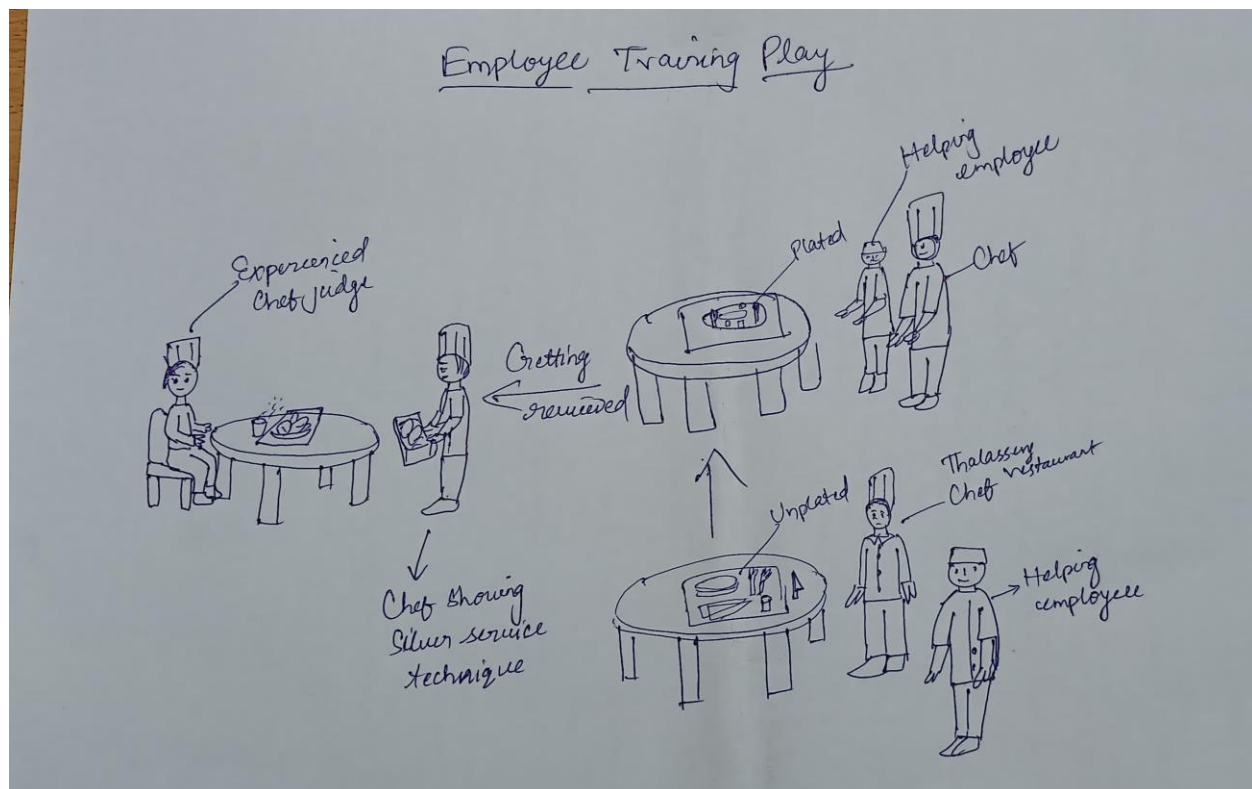 Employee Training Play
Helping
employee
Plated
Chef
Experienced
Chef judge
Getting
reviewed
Thalassery
Chef restaurant
Unplated
Helping
employee
Chef Showing
Silver service
technique